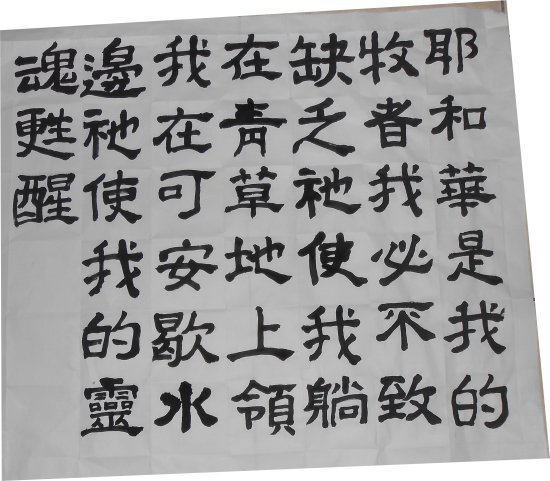 耶和華是我的
牧者我必不致
缺乏祂使我躺
在青草地上領
我在可安歇水
邊祂使我的靈
魂甦醒